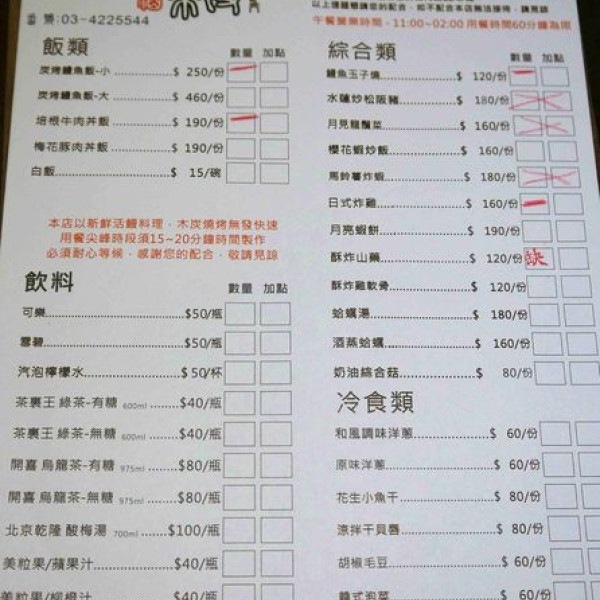 電:03-4225544
午餐營業時間,11:00~02:00 用餐時間60分鐘為限
飯類
數量 加點
炭烤鰻魚飯-小 $ 250/份
炭烤鰻魚飯-大 $ 460/份
培根牛肉丼飯 $ 190/份
梅花豚肉丼飯 $ 190/份
白飯 $ 15/碗
本店以新鮮活鰻料理,木炭燒烤無發快速
用餐尖峰時段須15~20分鐘時間製作
必須耐心等候,感謝您的配合,敬請見諒
飲料
數量 加點
可樂 $50/瓶
雪碧 $50/瓶
汽泡檸檬水 $50/杯
茶裏王 綠茶-有糖 600ml $40/瓶
茶裏王 綠茶-無糖 600ml $40/瓶
開喜 烏龍茶-有糖 975ml $80/瓶
開喜 烏龍茶-無糖 975ml $80/瓶
北京乾隆 酸梅湯 700ml $100/瓶
美粒果/蘋果汁 $40/瓶
美粒果/柳橙汁 $40/瓶
綜合類
數量 加點
鰻魚玉子燒 $ 120/份
水蓮炒松阪豬 $ 180/份
月見龍鬚菜 $ 160/份
櫻花蝦炒飯 $ 160/份
馬鈴薯炸蝦 $ 180/份
日式炸雞 $ 160/份
月亮蝦餅 $ 190/份
酥炸山藥 $ 120/份 缺
酥炸雞軟骨 $ 120/份
蛤蠣湯 $ 180/份
酒蒸蛤蠣 $ 160/份
奶油綜合菇 $ 80/份
冷食類
和風調味洋蔥 $ 60/份
原味洋蔥 $ 60/份
花生小魚干 $ 80/份
涼拌干貝唇 $ 80/份
胡椒毛豆 $ 60/份
韓式泡菜 $ 60/份